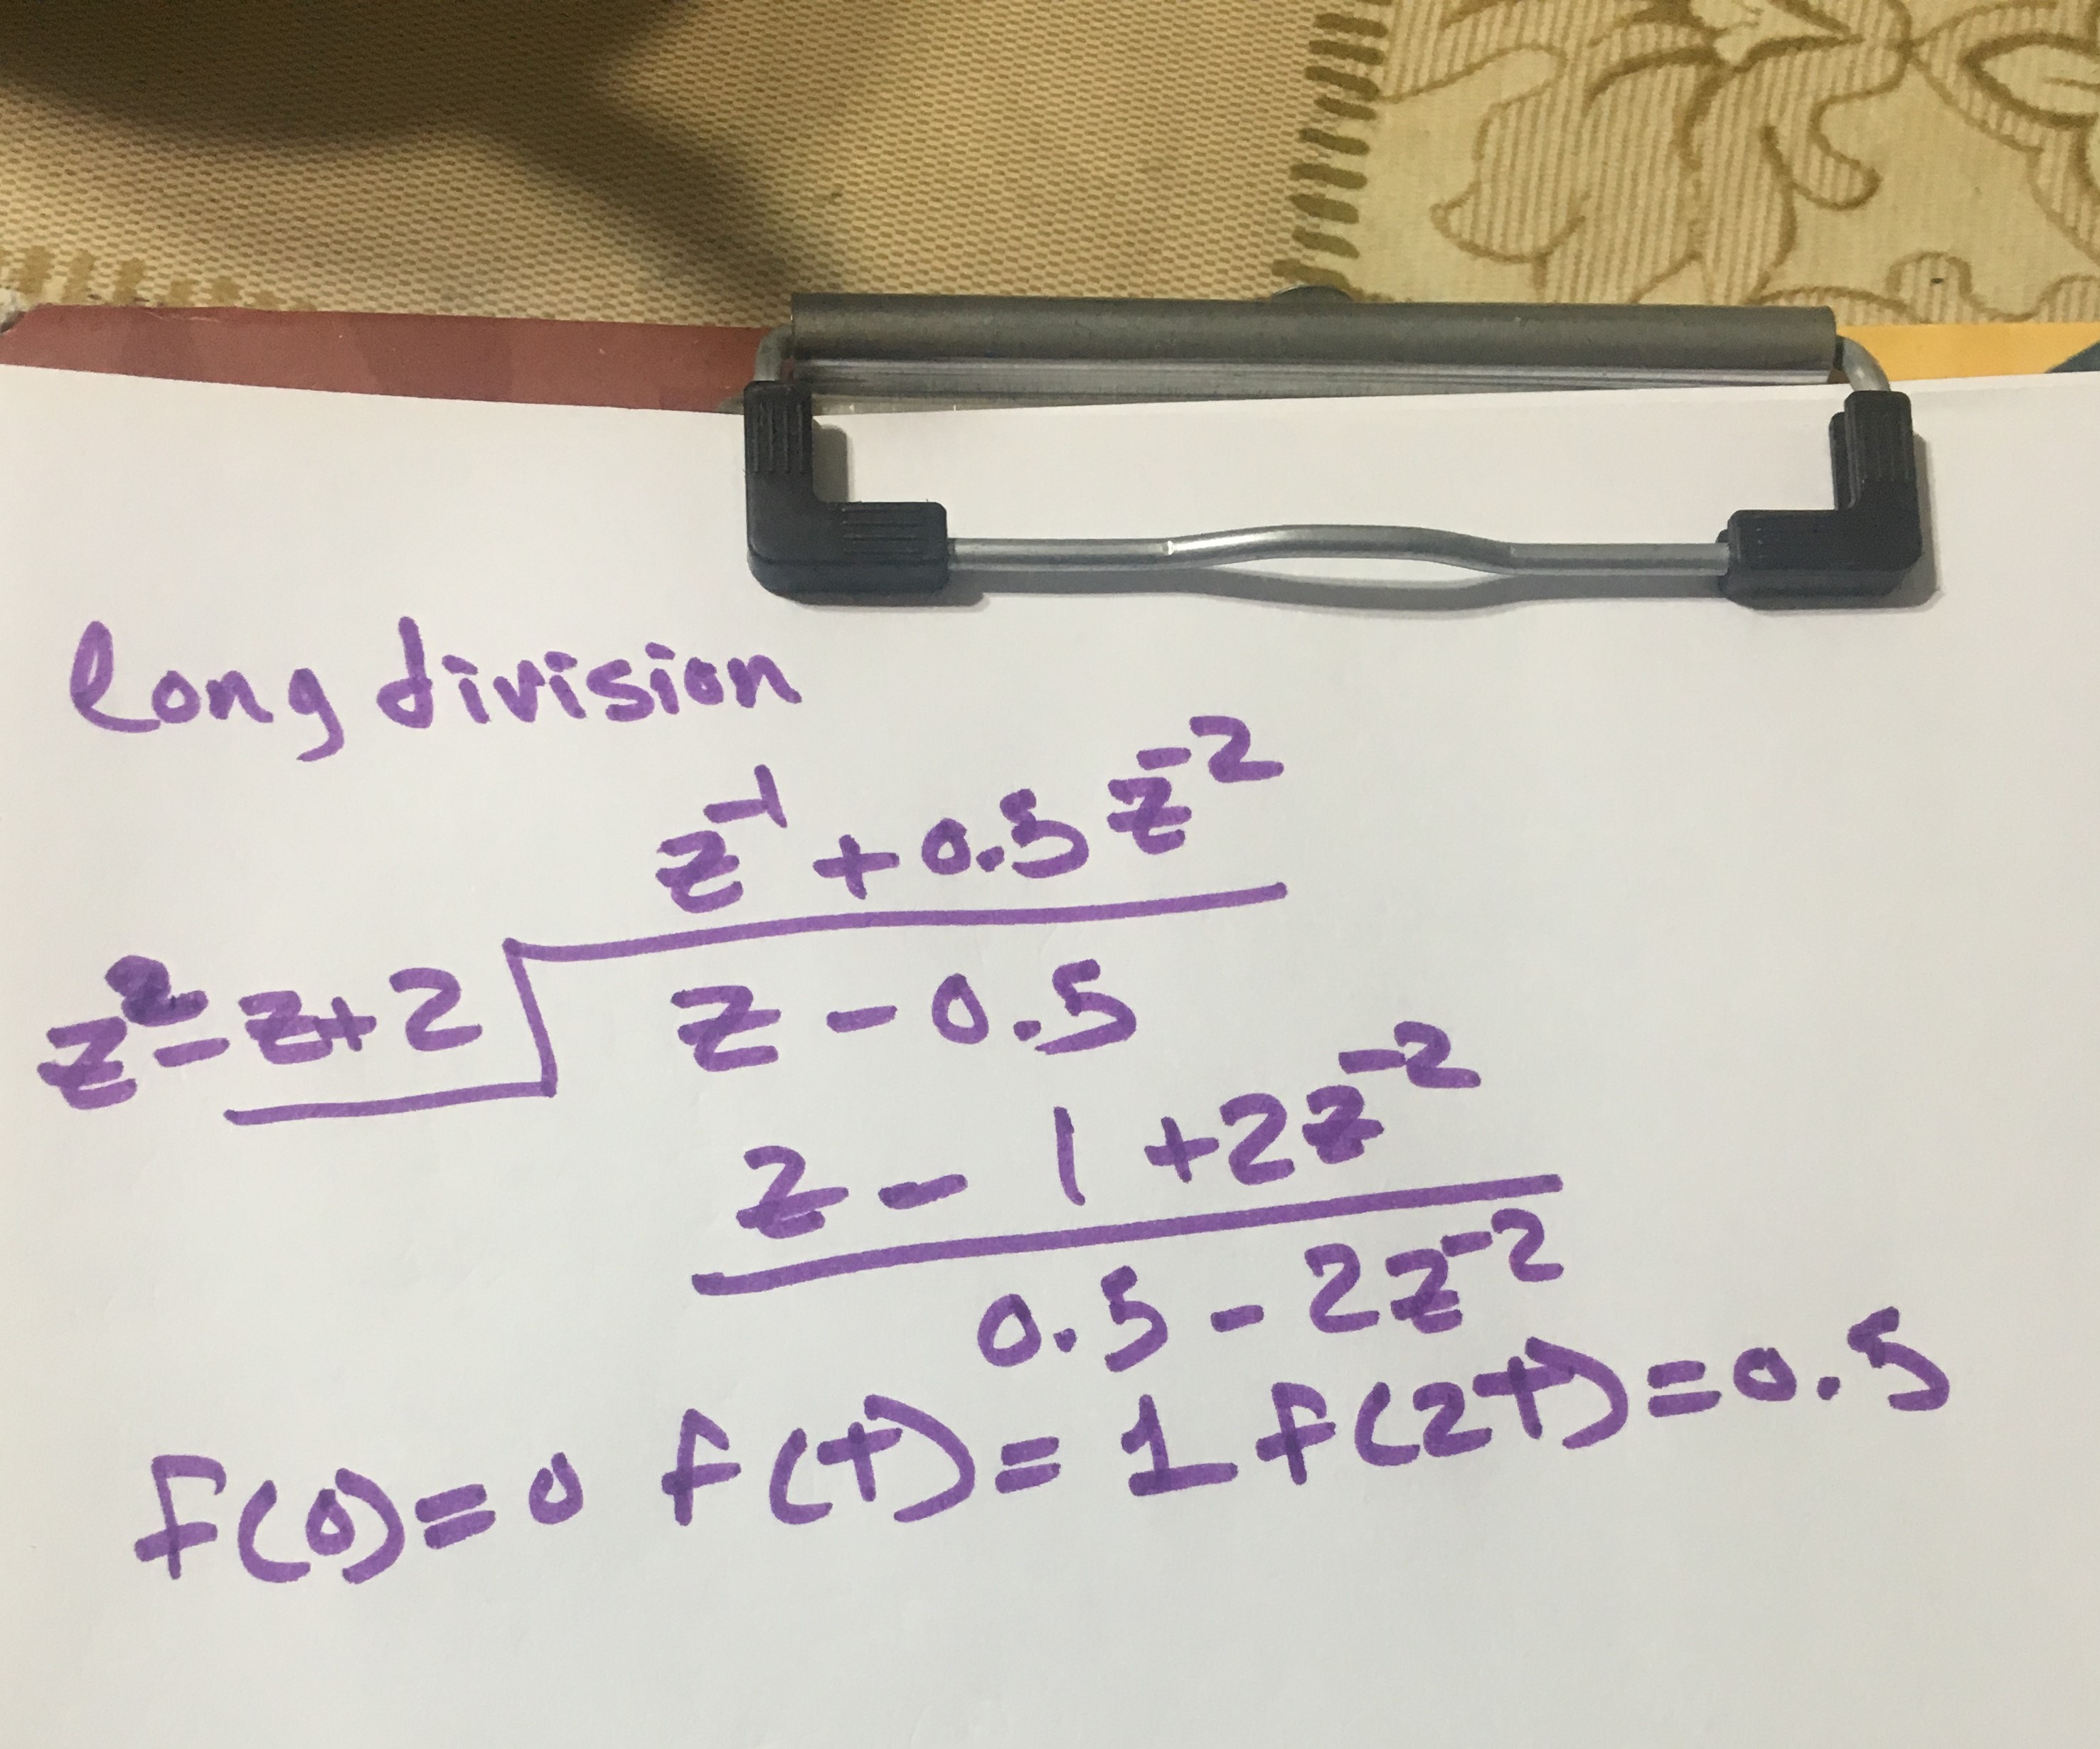 long division
z⁻¹ + 0.5 z⁻²
z² - z + 2 z - 0.5
z - 1 + 2z⁻²
0.5 - 2z⁻²
f(0) = 0 f(T) = 1 f(2T) = 0.5